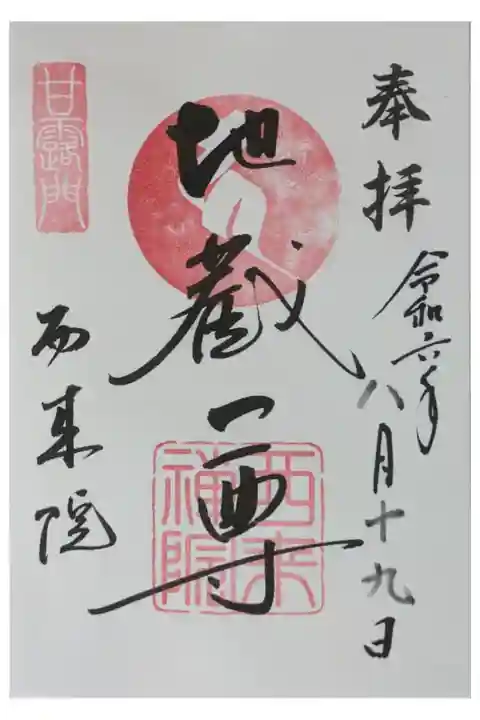 奉拝
令和六年
八月十九日
地蔵尊
甘露門
西来禅院
西来院